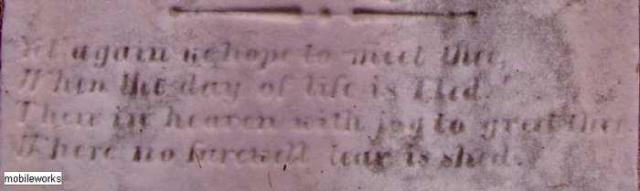 Yet again we hope to meet thee,
When the day of life is fled.
Then in heaven with joy to greet thee
Where no farewell tear is shed.
mobileworks